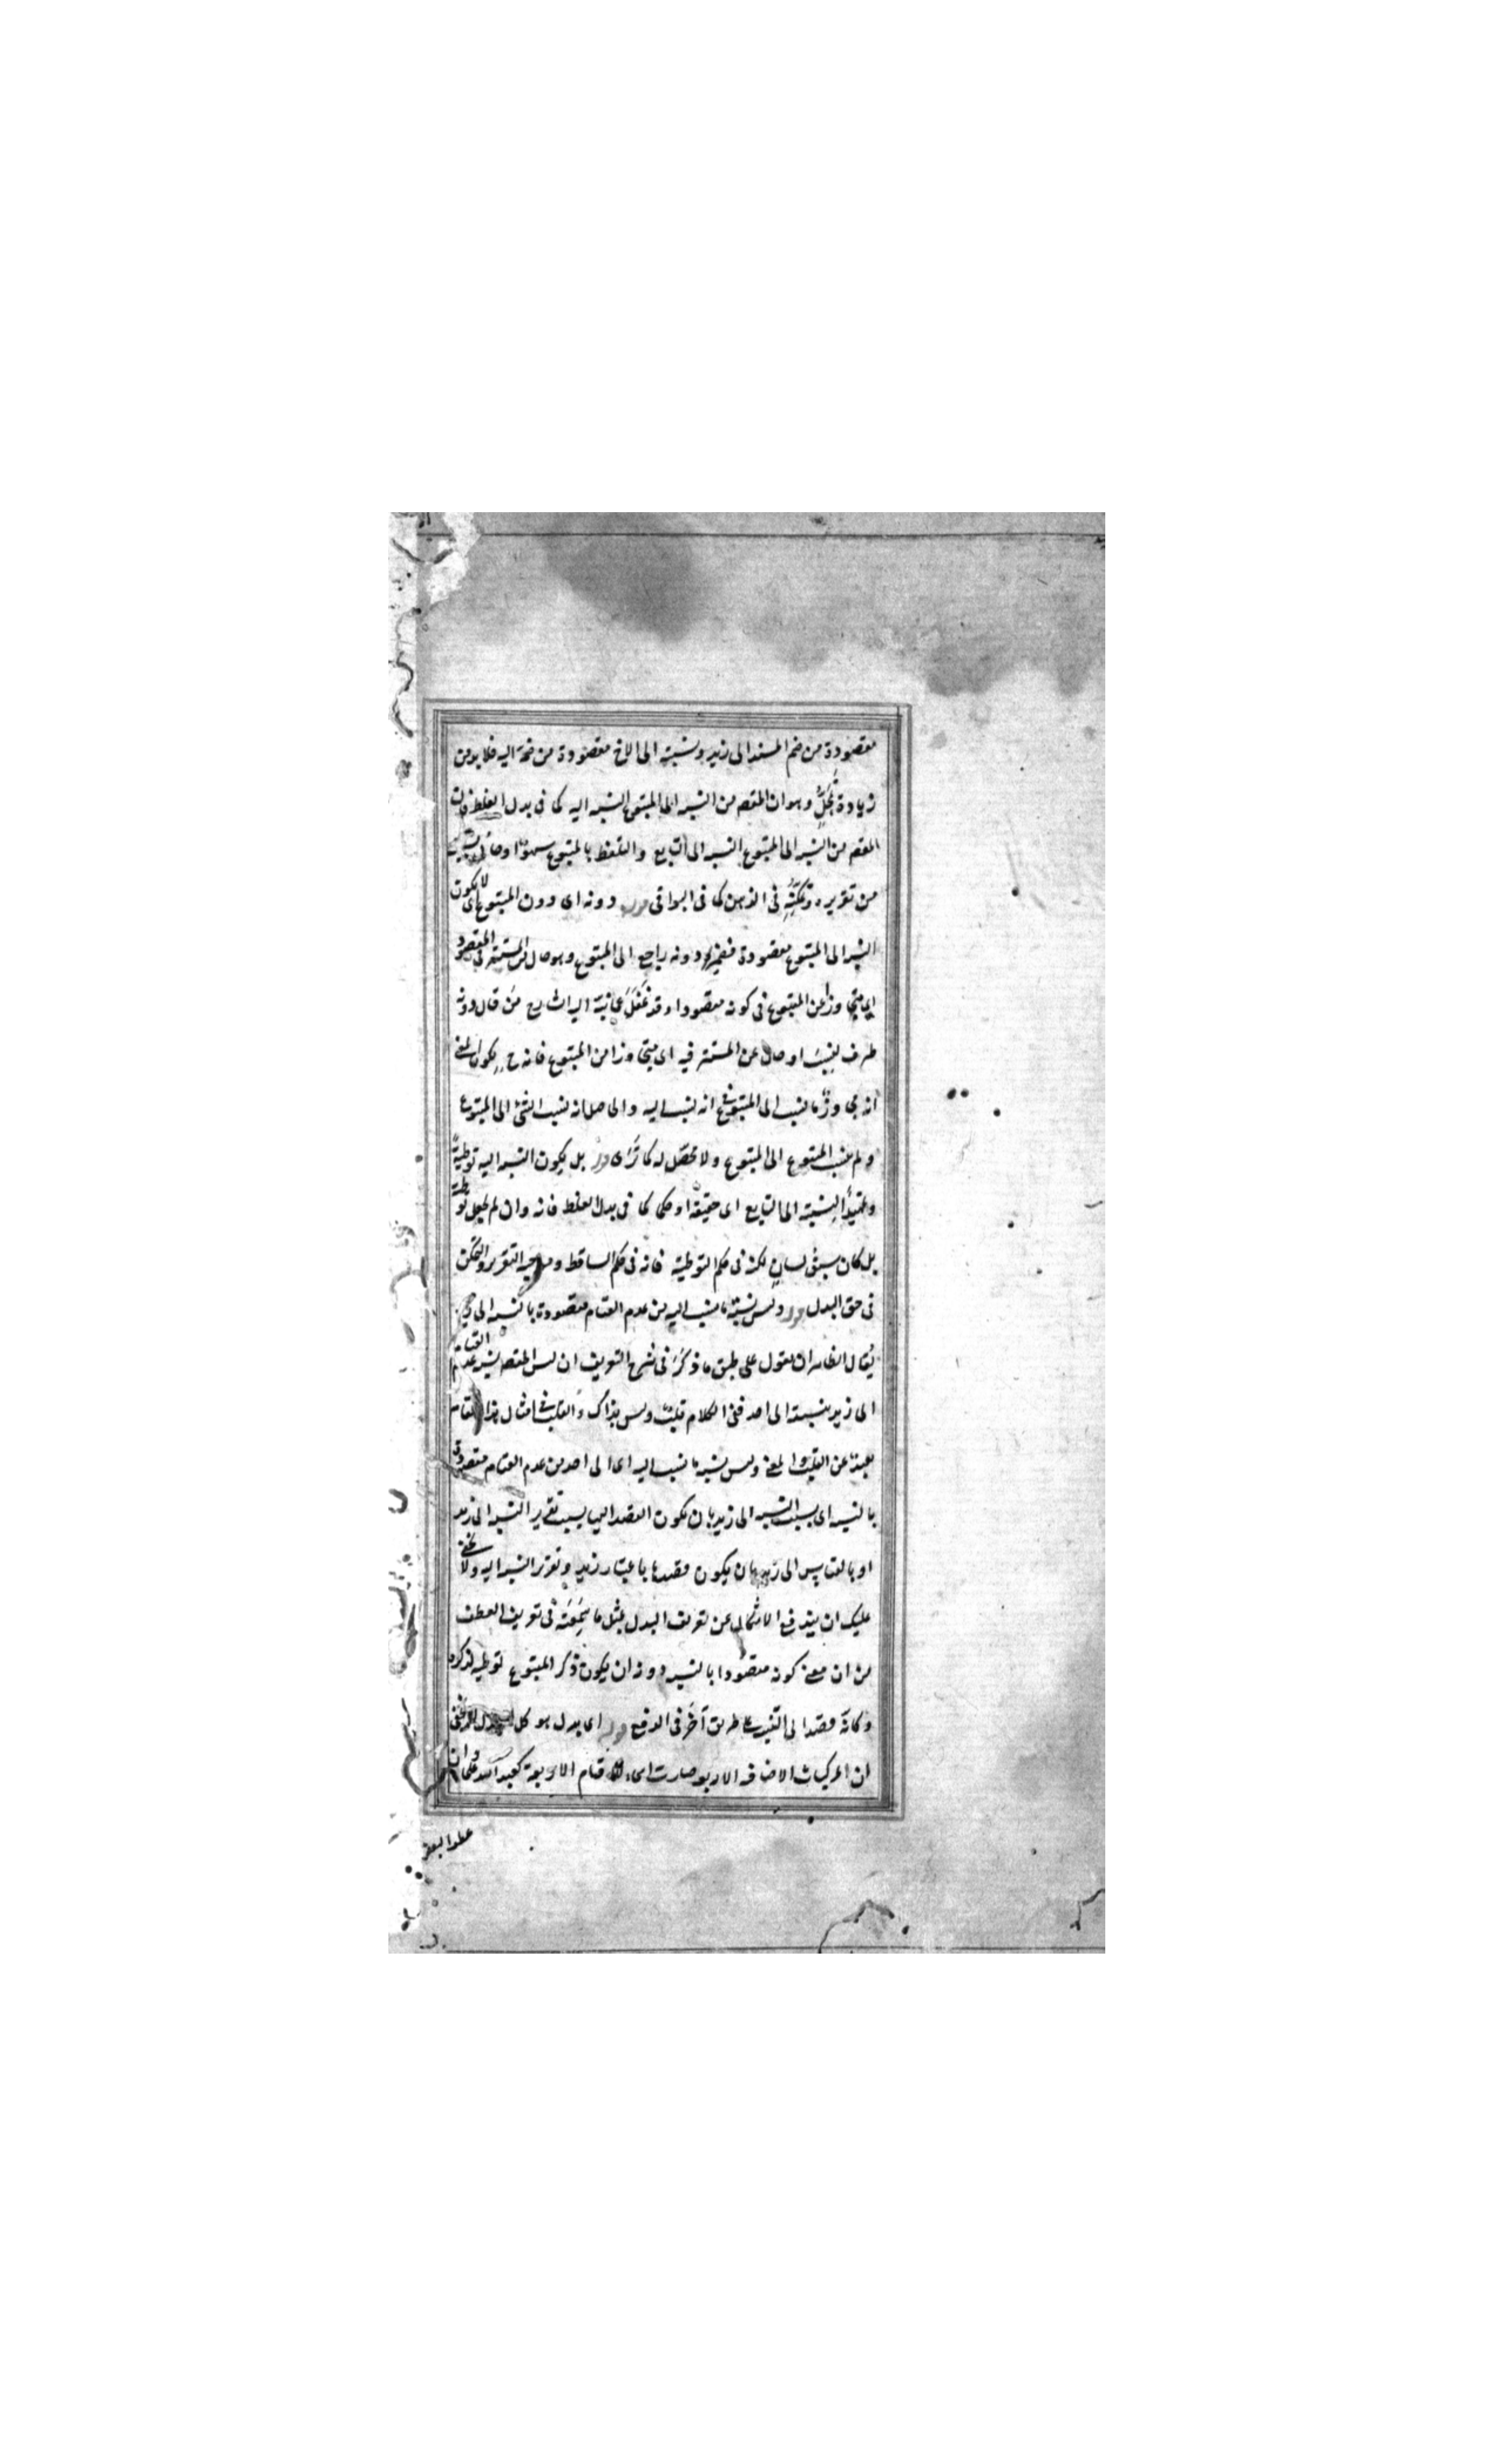 مقصودة من ضم المسند الى زيد ونسبته الى الاخ مقصودة من ضمه اليه فلا بد من
زيادة وهو ان المقصم من النسبه الى المتبوع النسبه اليه كما فى بدل الغلط فان
المقصم من النسبه الى المتبوع النسبه الى التابع والتلفظ بالمتبوع سهوًا
من تقريره وتمكنه فى الذهن كما فى البواقى قوله دونه اى دون المتبوع اى لا يكون
النسبه الى المتبوع مقصودة فضمير دونه راجع الى المتبوع وهو حال من المستتر فى المقصود
اى متجاوزا عن المتبوع فى كونه مقصودا وقد غفل عما نبه اليه الشارح من قال دونه
ظرف ينسب او حال عن المستتر فيه اى متجاوزا من المتبوع فانه ح يكون المعنى
انه تجاوز ما نسب الى المتبوع فى انه نسب اليه والحاصل انه نسب الشئ الى المتبوع
ولم ينسب المتبوع الى المتبوع ولا محصل له كما ترى قوله بل يكون النسبه اليه توطيةً
وتمهيدًا لنسبته الى التابع اى حقيقة او حكما كما فى بدل الغلط فانه وان لم يجعل توطية
بل كان سبق لسان لكنه فى حكم التوطية فانه فى حكم الساقط و التقرير والتمكن
فى حق البدل قوله وليس نسبة ما نسب اليه من عدم القيام مقصودة بالنسبه الى
يقال الظاهر ان يقول على طبق ما ذكره فى شرح التعريف ان ليس المقصم بنسبه عدم القيام
الى زيد نسبته الى احد ففى الكلام قلب وليس بذاك والقلب فى امثال هذا المقام
بعيد عن القلب والمعنى وليس نسبه ما نسب اليه اى الى احد من عدم القيام مقصودة
بالنسبه اى بسبب النسبه الى زيد بان يكون القصد اليها بسبب تقرير النسبه الى زيد
او بالقياس الى زيد بان يكون قصدها باعتبار زيد وتقرر النسبه اليه ولا يخفى
عليك ان يندفع الاشكال عن تعريف البدل بمثل ما سمعته فى تعريف العطف
من ان معنى كونه مقصودا بالنسبه دونه ان يكون ذكر المتبوع توطيه لذكره
وكانه قصد الى التنبيه على طريق آخر فى الدفع قوله اى بدل هو كل
ان المركبات الاضافه الاربع صارت اسماء لاقسام الاربعة كعبد الله علما وان